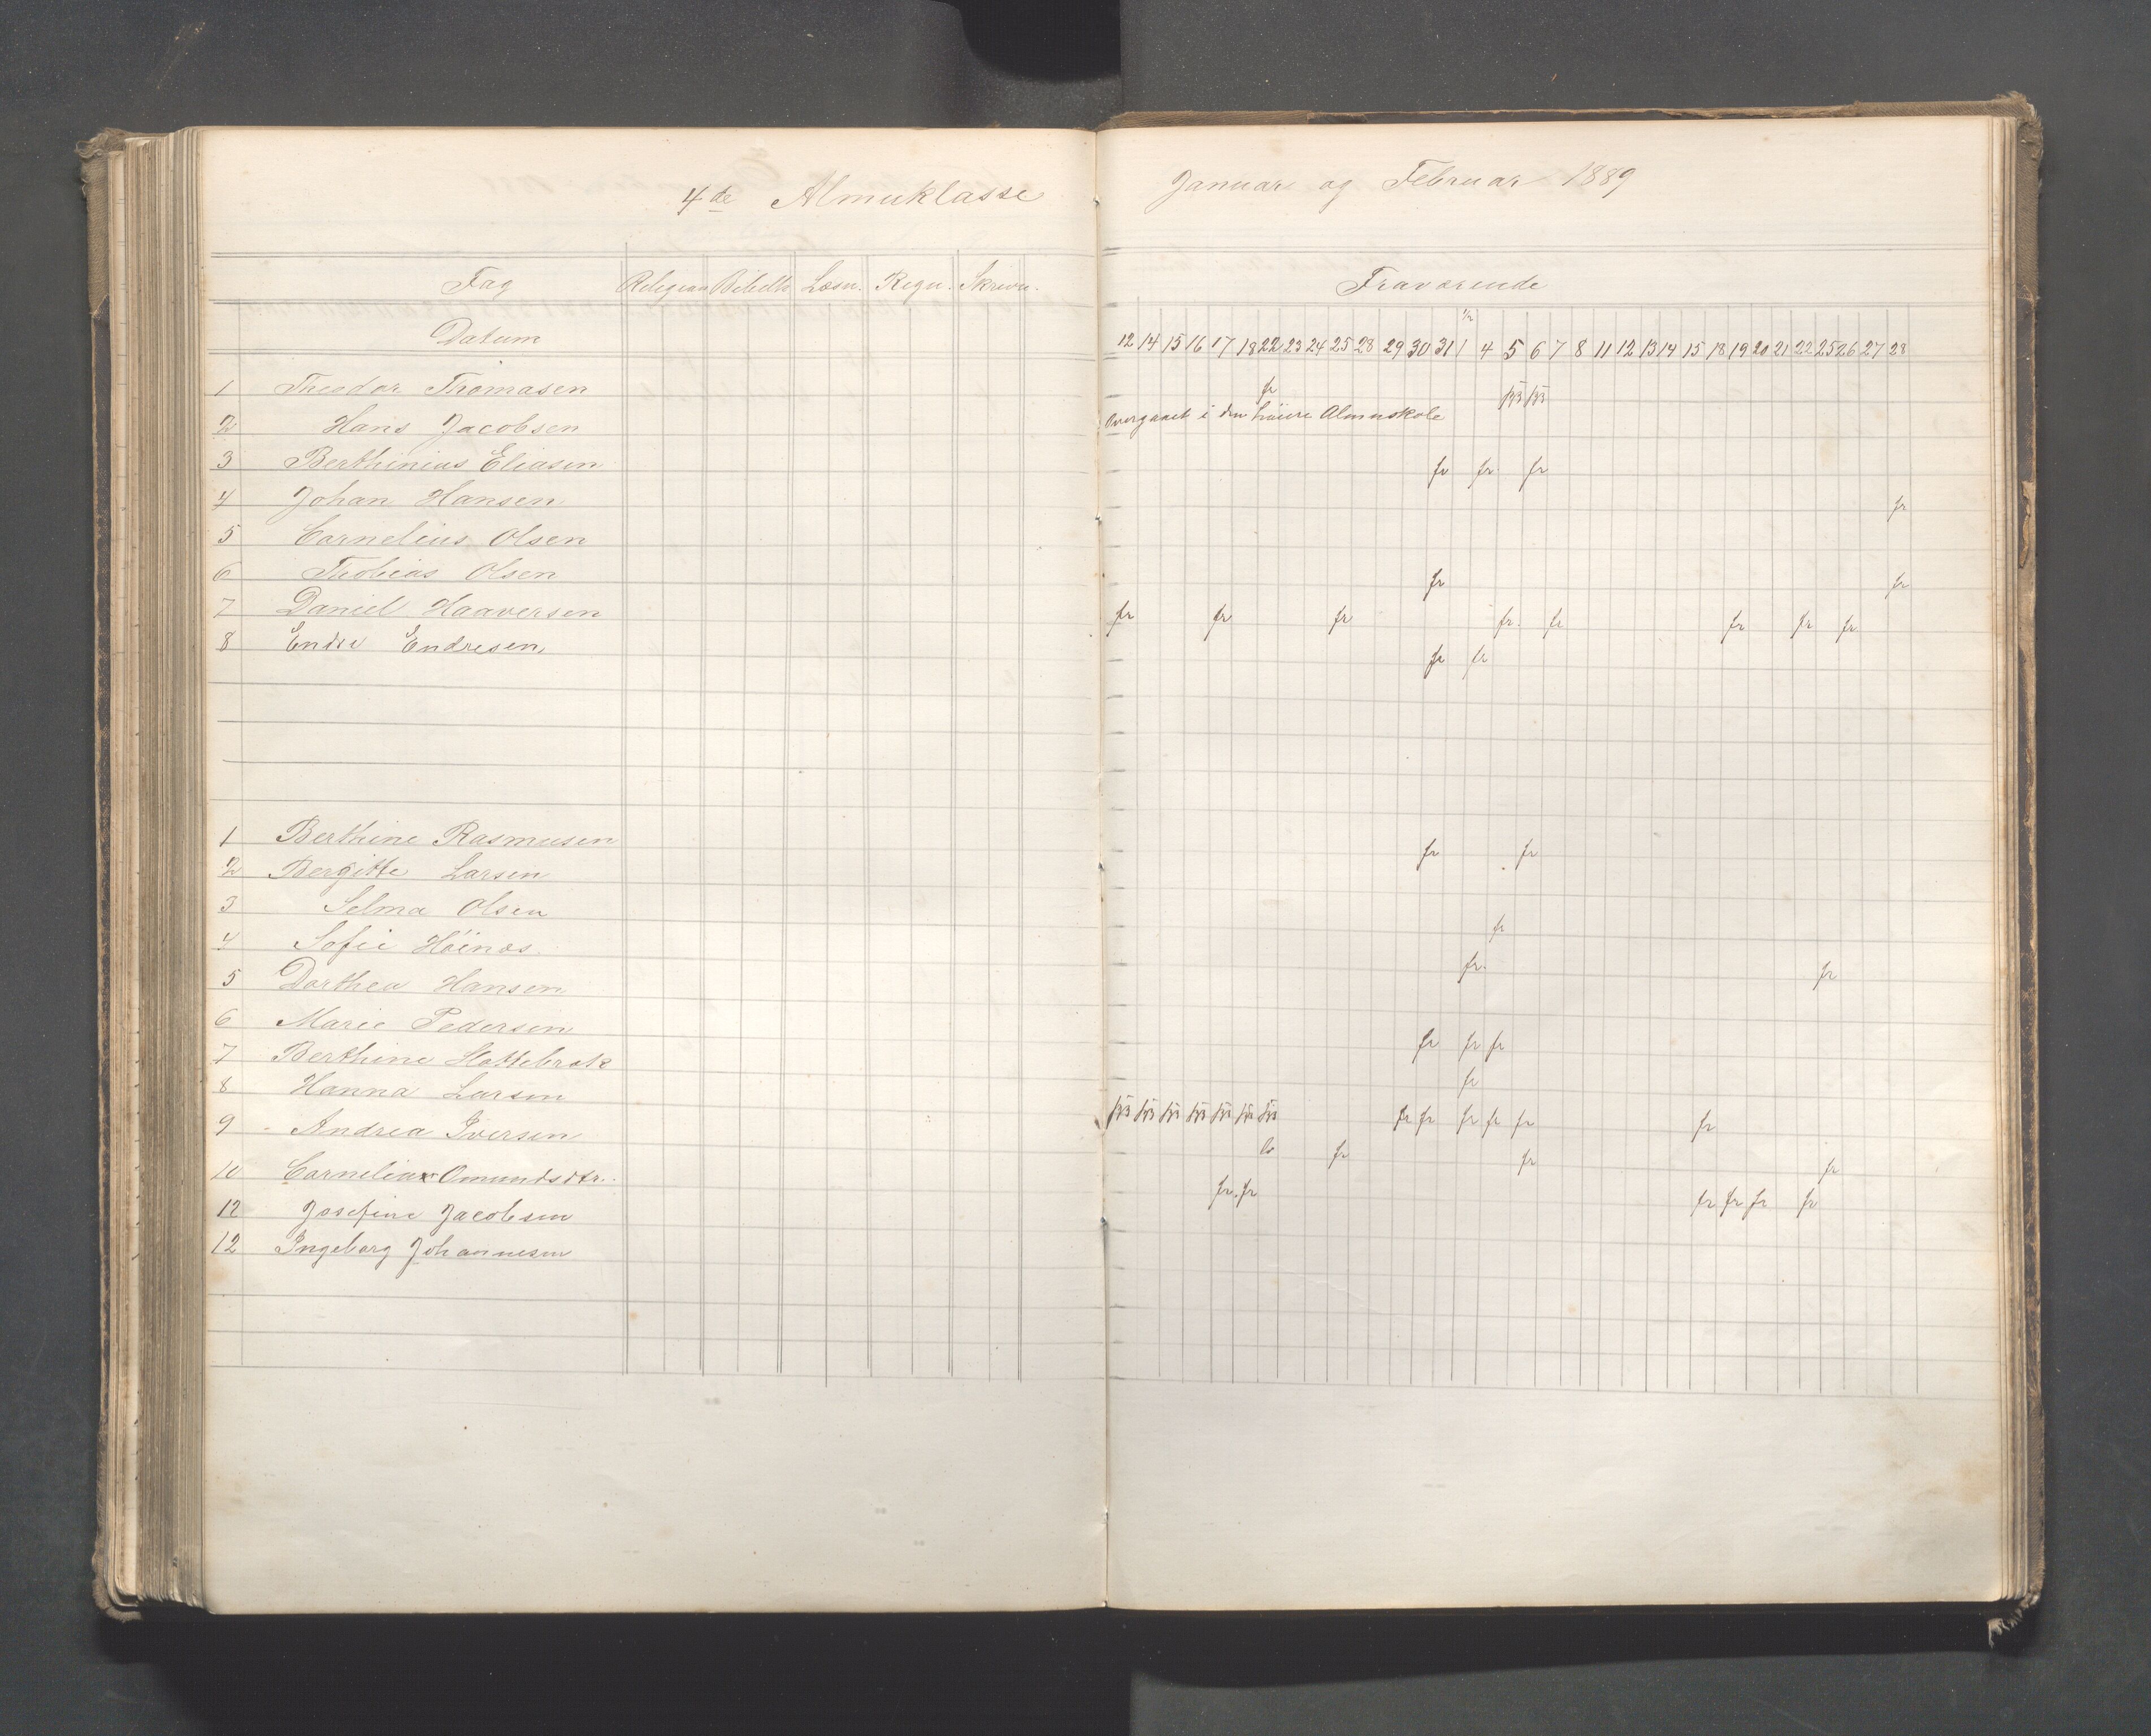 4de Almuklasse
Januar og Februar 1889
Fag Religion Bibelh. Læsn. Regn. Skrivn.
Fraværende
Datum
1/2
12 14 15 16 17 18 22 23 24 25 28 29 30 31 1 4 5 6 7 8 11 12 13 14 15 18 19 20 21 22 25 26 27 28
1 Theodor Thomasen fr
2 Hans Jacobsen Overgaaet i den høiere Almuskole
3 Berthinius Eliasen fr fr. fr
4 Johan Hansen fr
5 Cornelius Olsen
6 Thobias Olsen fr fr
7 Daniel Haaversen fr fr fr fr. fr fr fr fr
8 Endre Endresen fr fr
1 Berthine Rasmusen fr fr
2 Bergitte Larsen
3 Selma Olsen fr
4 Sofie Höinæs. fr. fr
5 Dorthea Hansen
6 Marie Pedersen fr fr fr
7 Berthine Hottebrok fr
8 Hanna Larsen fr fr fr fr fr fr
9 Andrea Iversen fr fr fr
10 Cornelia Omundsdtr. fr. fr fr fr fr fr
12 Josefine Jacobsen
12 Ingeborg Johannesen